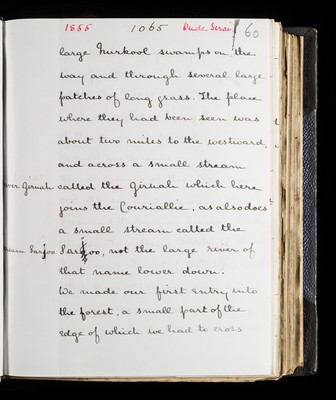 1855 1065 Dude Serai 60
large Nurkool swamps on the
way and through several large
patches of long grass. The place
where they had been seen was
about two miles to the westward,
and across a small stream
River Giruah called the Giruah which here
joins the Couriallie, as also does
a small stream called the
Stream Sarjoo Sarjoo, not the large river of
that name lower down.
We made our first entry into
the forest, a small part of the
edge of which we had to cross